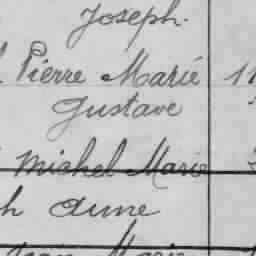 Joseph.
Pierre Marie 11
Gustave
Michel Marie
h Anne
Jean Marie